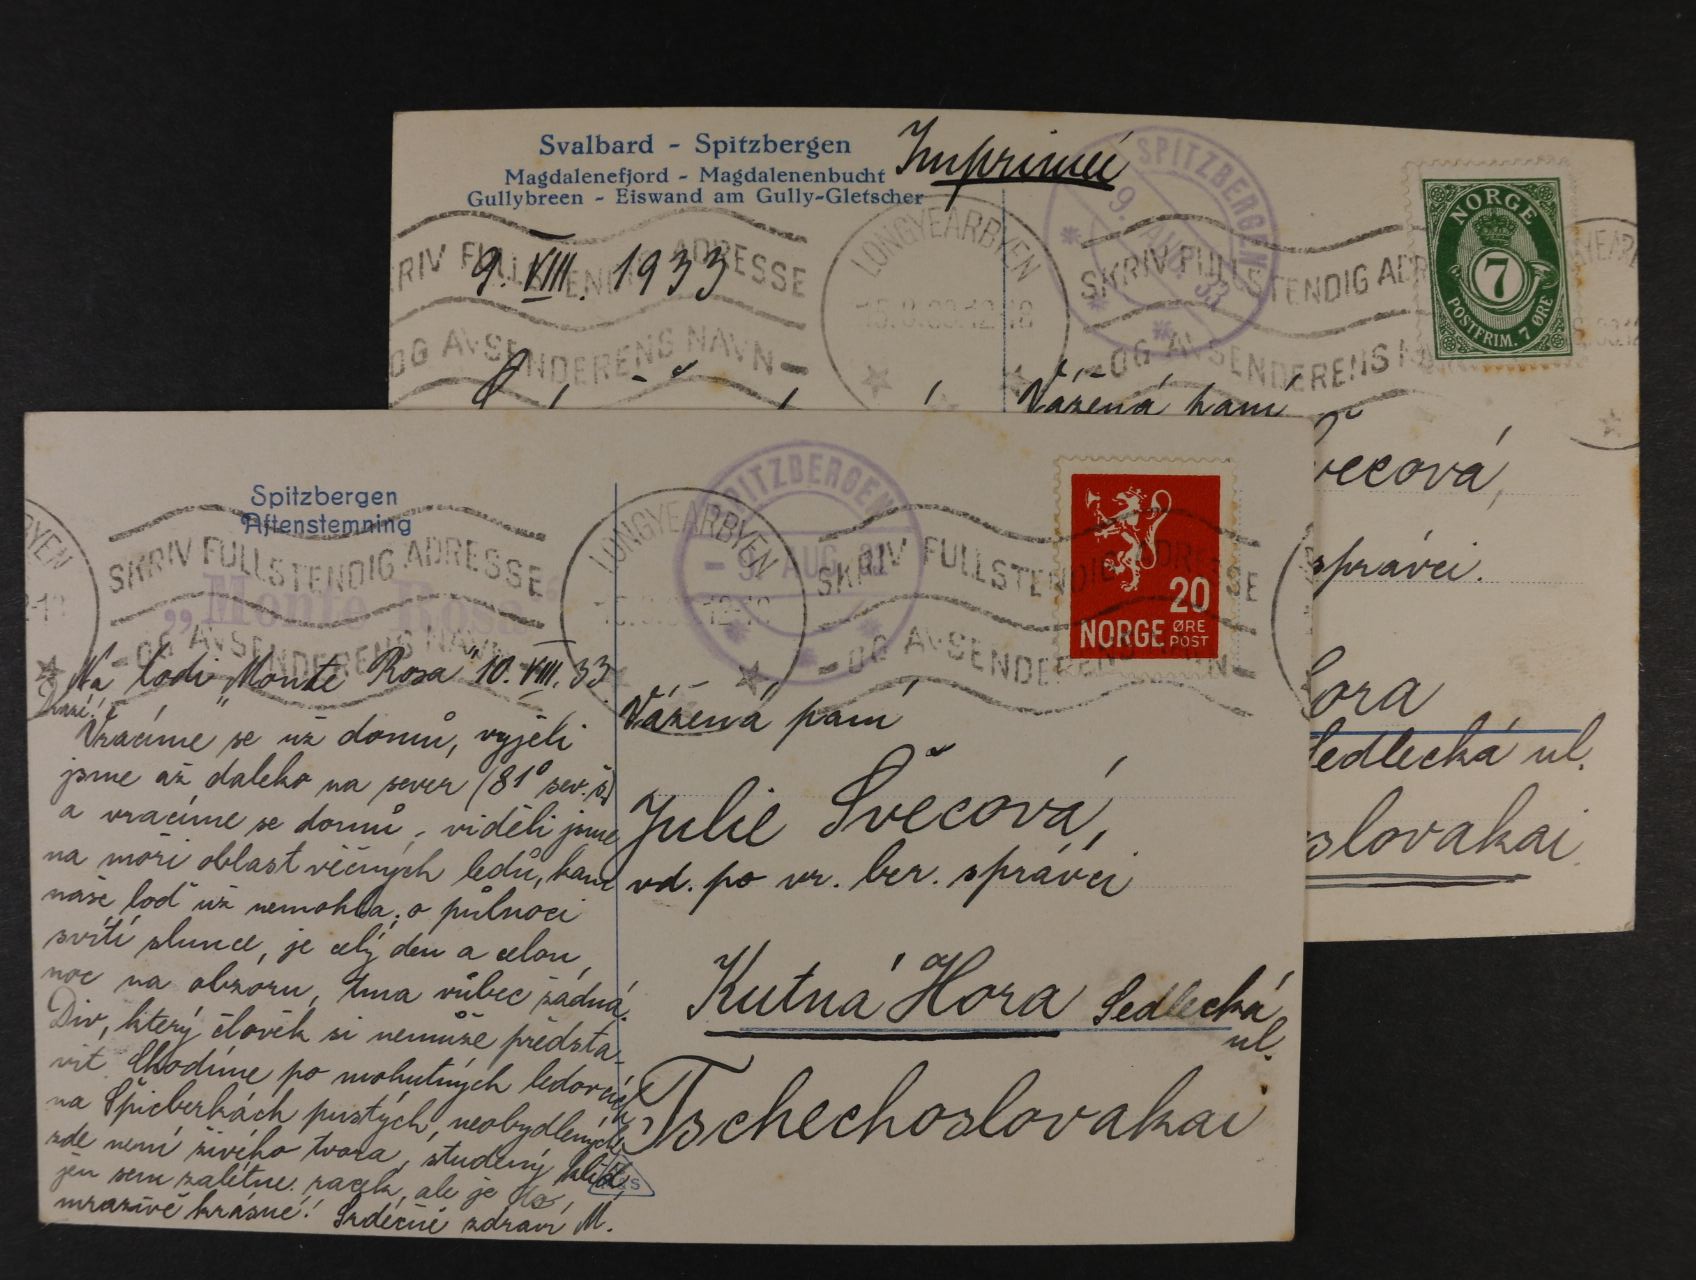 Svalbard - Spitzbergen
Magdalenefjord - Magdalenenbucht
Gullybreen - Eiswand am Gully-Gletscher
Imprimé
SPITZBERGEN
9. AUG. 33
SKRIV FULLSTENDIG ADRESSE
OG AVSENDERENS NAVN
LONGYEARBYEN
SKRIV FULLSTENDIG ADR
OG AVSENDERENS NA
NORGE
7
POSTFRIM. 7 ØRE
9. VIII. 1933
Vážená paní
vecová,
správci.
ora
Sedlecká ul.
slovakai
Spitzbergen
Aftenstemning
SKRIV FULLSTENDIG ADRESSE
OG AVSENDERENS NAVN
LONGYEARBYEN
SPITZBERGEN
9. AUG.
SKRIV FULLSTENDIG ADRESSE
OG AVSENDERENS NAVN
20
NORGE ØRE POST
„Monte Rosa"
Na lodi „Monte Rosa" 10. VIII. 33
Vracíme se už domů, vyjeli
jsme až daleko na sever (81° sev. š.)
a vracíme se domů, viděli jsme
na moři oblast věčných ledů, kam
naše loď už nemohla, o půlnoci
svítí slunce, je celý den a celou
noc na obzoru, tma vůbec žádná.
Div, který člověk si nemůže předsta-
vit. Chodíme po mohutných ledovcích
na Špicberkách pustých, neobydlených,
zde není živého tvora, studený klid,
jen sem zalétne racek, ale je to
mrazivě krásné! Srdečně zdraví M.
Vážená paní
Julie Švecová,
vd. po vr. ber. správci
Kutná Hora Sedlecká
ul.
Tschechoslovakai